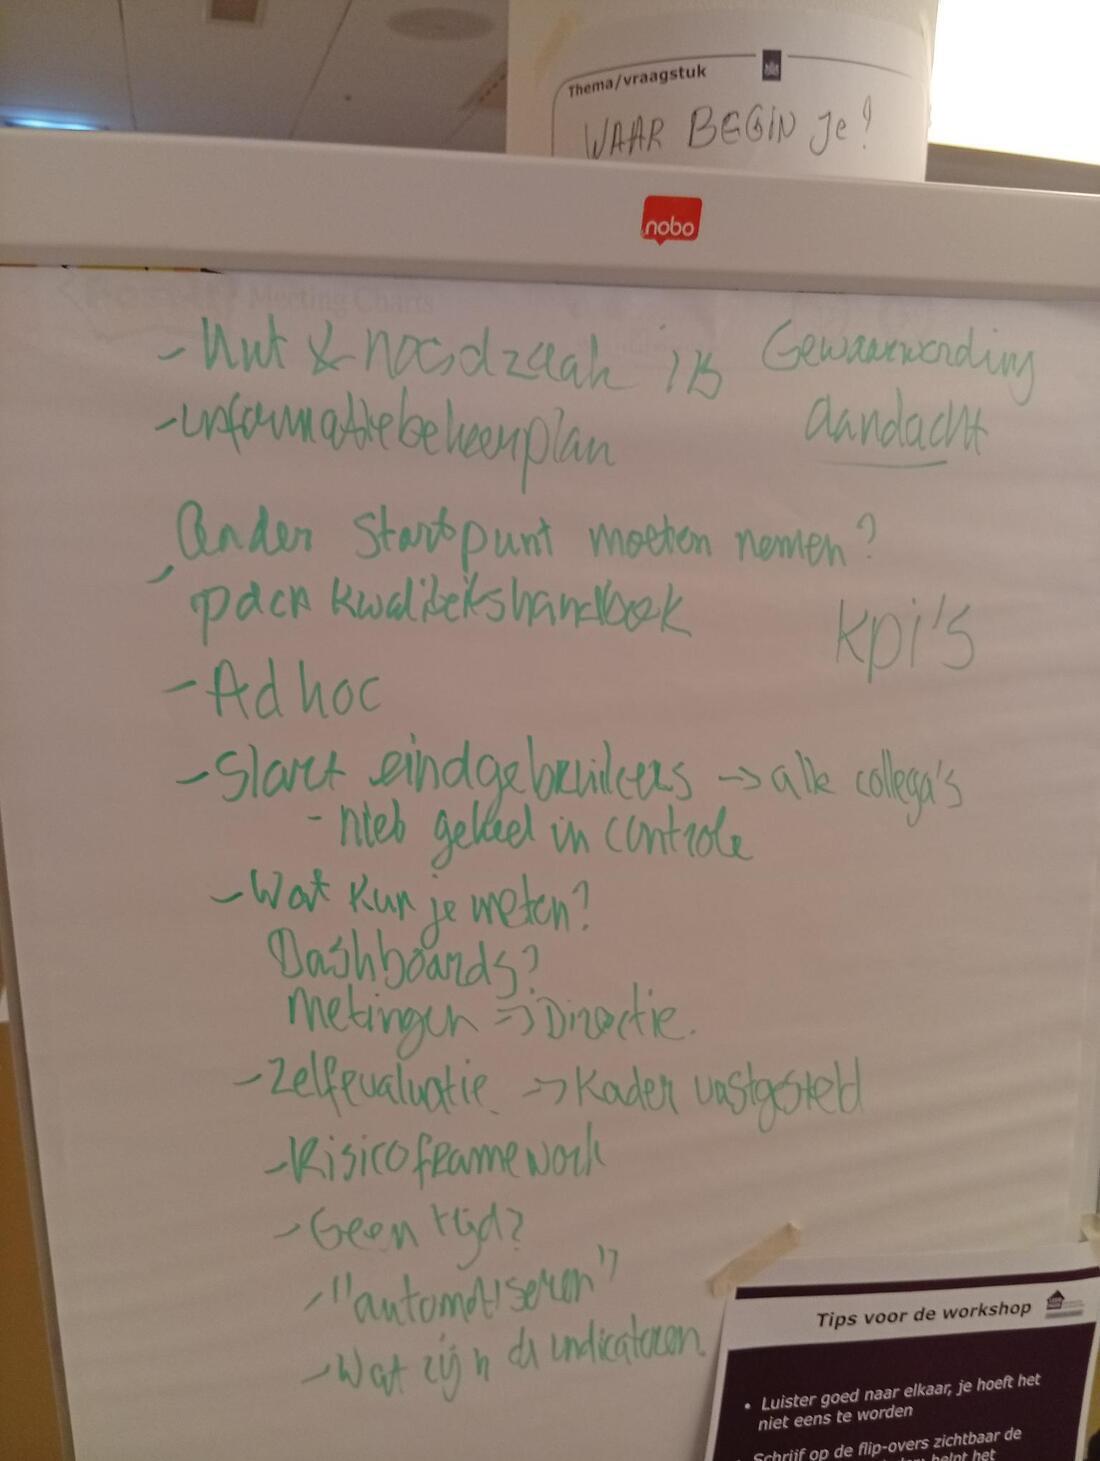 Thema/vraagstuk
WAAR BEGIN je?
nobo
Meeting Charts
- Nut & noodzaak IB Gewaarwording
aandacht
- informatiebeheerplan
Ander Startpunt moeten nemen?
- pdca kwaliteitshandboek
kpi's
- Ad hoc
- Start eindgebruikers -> alle collega's
- niet geheel in controle
- Wat kun je meten?
Dashboards?
Metingen => Directie.
- Zelfevaluatie => Kader vastgesteld
- Risicoframework
- Geen tijd?
- "automatiseren"
- Wat zijn de indicatoren
Tips voor de workshop
• Luister goed naar elkaar, je hoeft het
niet eens te worden
Schrijf op de flip-overs zichtbaar de
helpt het